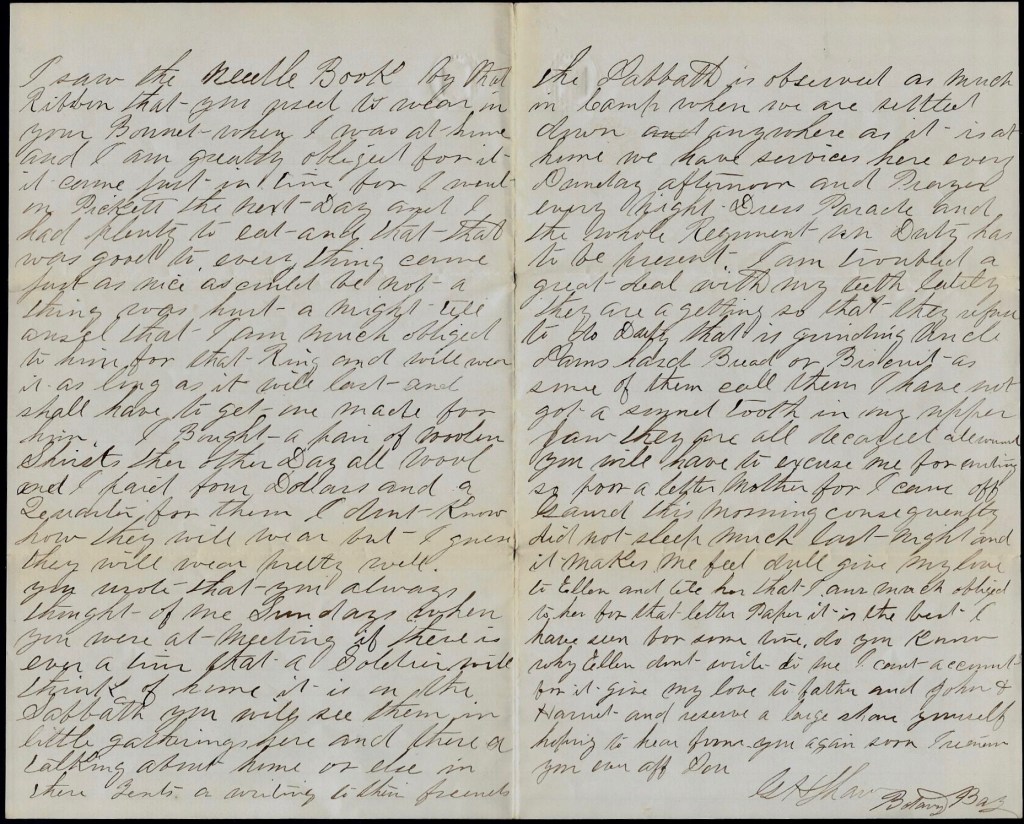 I saw the Needle Book by that
Ribbon that you used to wear in
your Bonnet when I was at home
and I am greatly obliged for it
it came just in time for I went
on Pickett the next Day and I
had plenty to eat and that that
was good to every thing came
just as nice as could be not a
thing was hurt a might tell
that I am much obliged
to him for that Ring and will wear
it as long as it will last and
shall have to get one made for
him. I Bought a pair of woolen
Shirts ther other Day all wool
and I paid four Dollars and a
for them I dont know
how they will wear but I guess
they will wear pretty well.
you wrote that you always
thought of me Sundays when
you were at meeting if there is
ever a time that a Soldier will
think of home it is on the
Sabbath you will see them in
little gatherings here and there a
talking about home or else in
there Tents a writing to their friends
the Sabbath is observed as much
in Camp when we are settled
down and anywhere as it is at
home we have services here every
Sunday afternoon and Prayer
every Night Dress Parade and
the whole Regiment on Duty has
to be present. I am troubled a
great deal with my teeth lately
they are a getting so that they refuse
to do Duty that is grinding Uncle
Sams hard Bread or Biscuit as
some of them call them I have not
got a sound tooth in my upper
jaw they are all decayed
you will have to excuse me for writing
so poor a letter Mother for I came off
Gaurd this Morning consequently
did not sleep much last Night and
it makes me feel dull give my love
to Ellen and tell her that I am much obliged
to her for that letter Paper it is the best I
have seen for some time. do you know
why Ellen dont write to me I cant account
for it give my love to father and John &
Harriet and reserve a large share yourself
hoping to hear from you again soon I remain
you ever aff Son
Shaw
Botany Bay